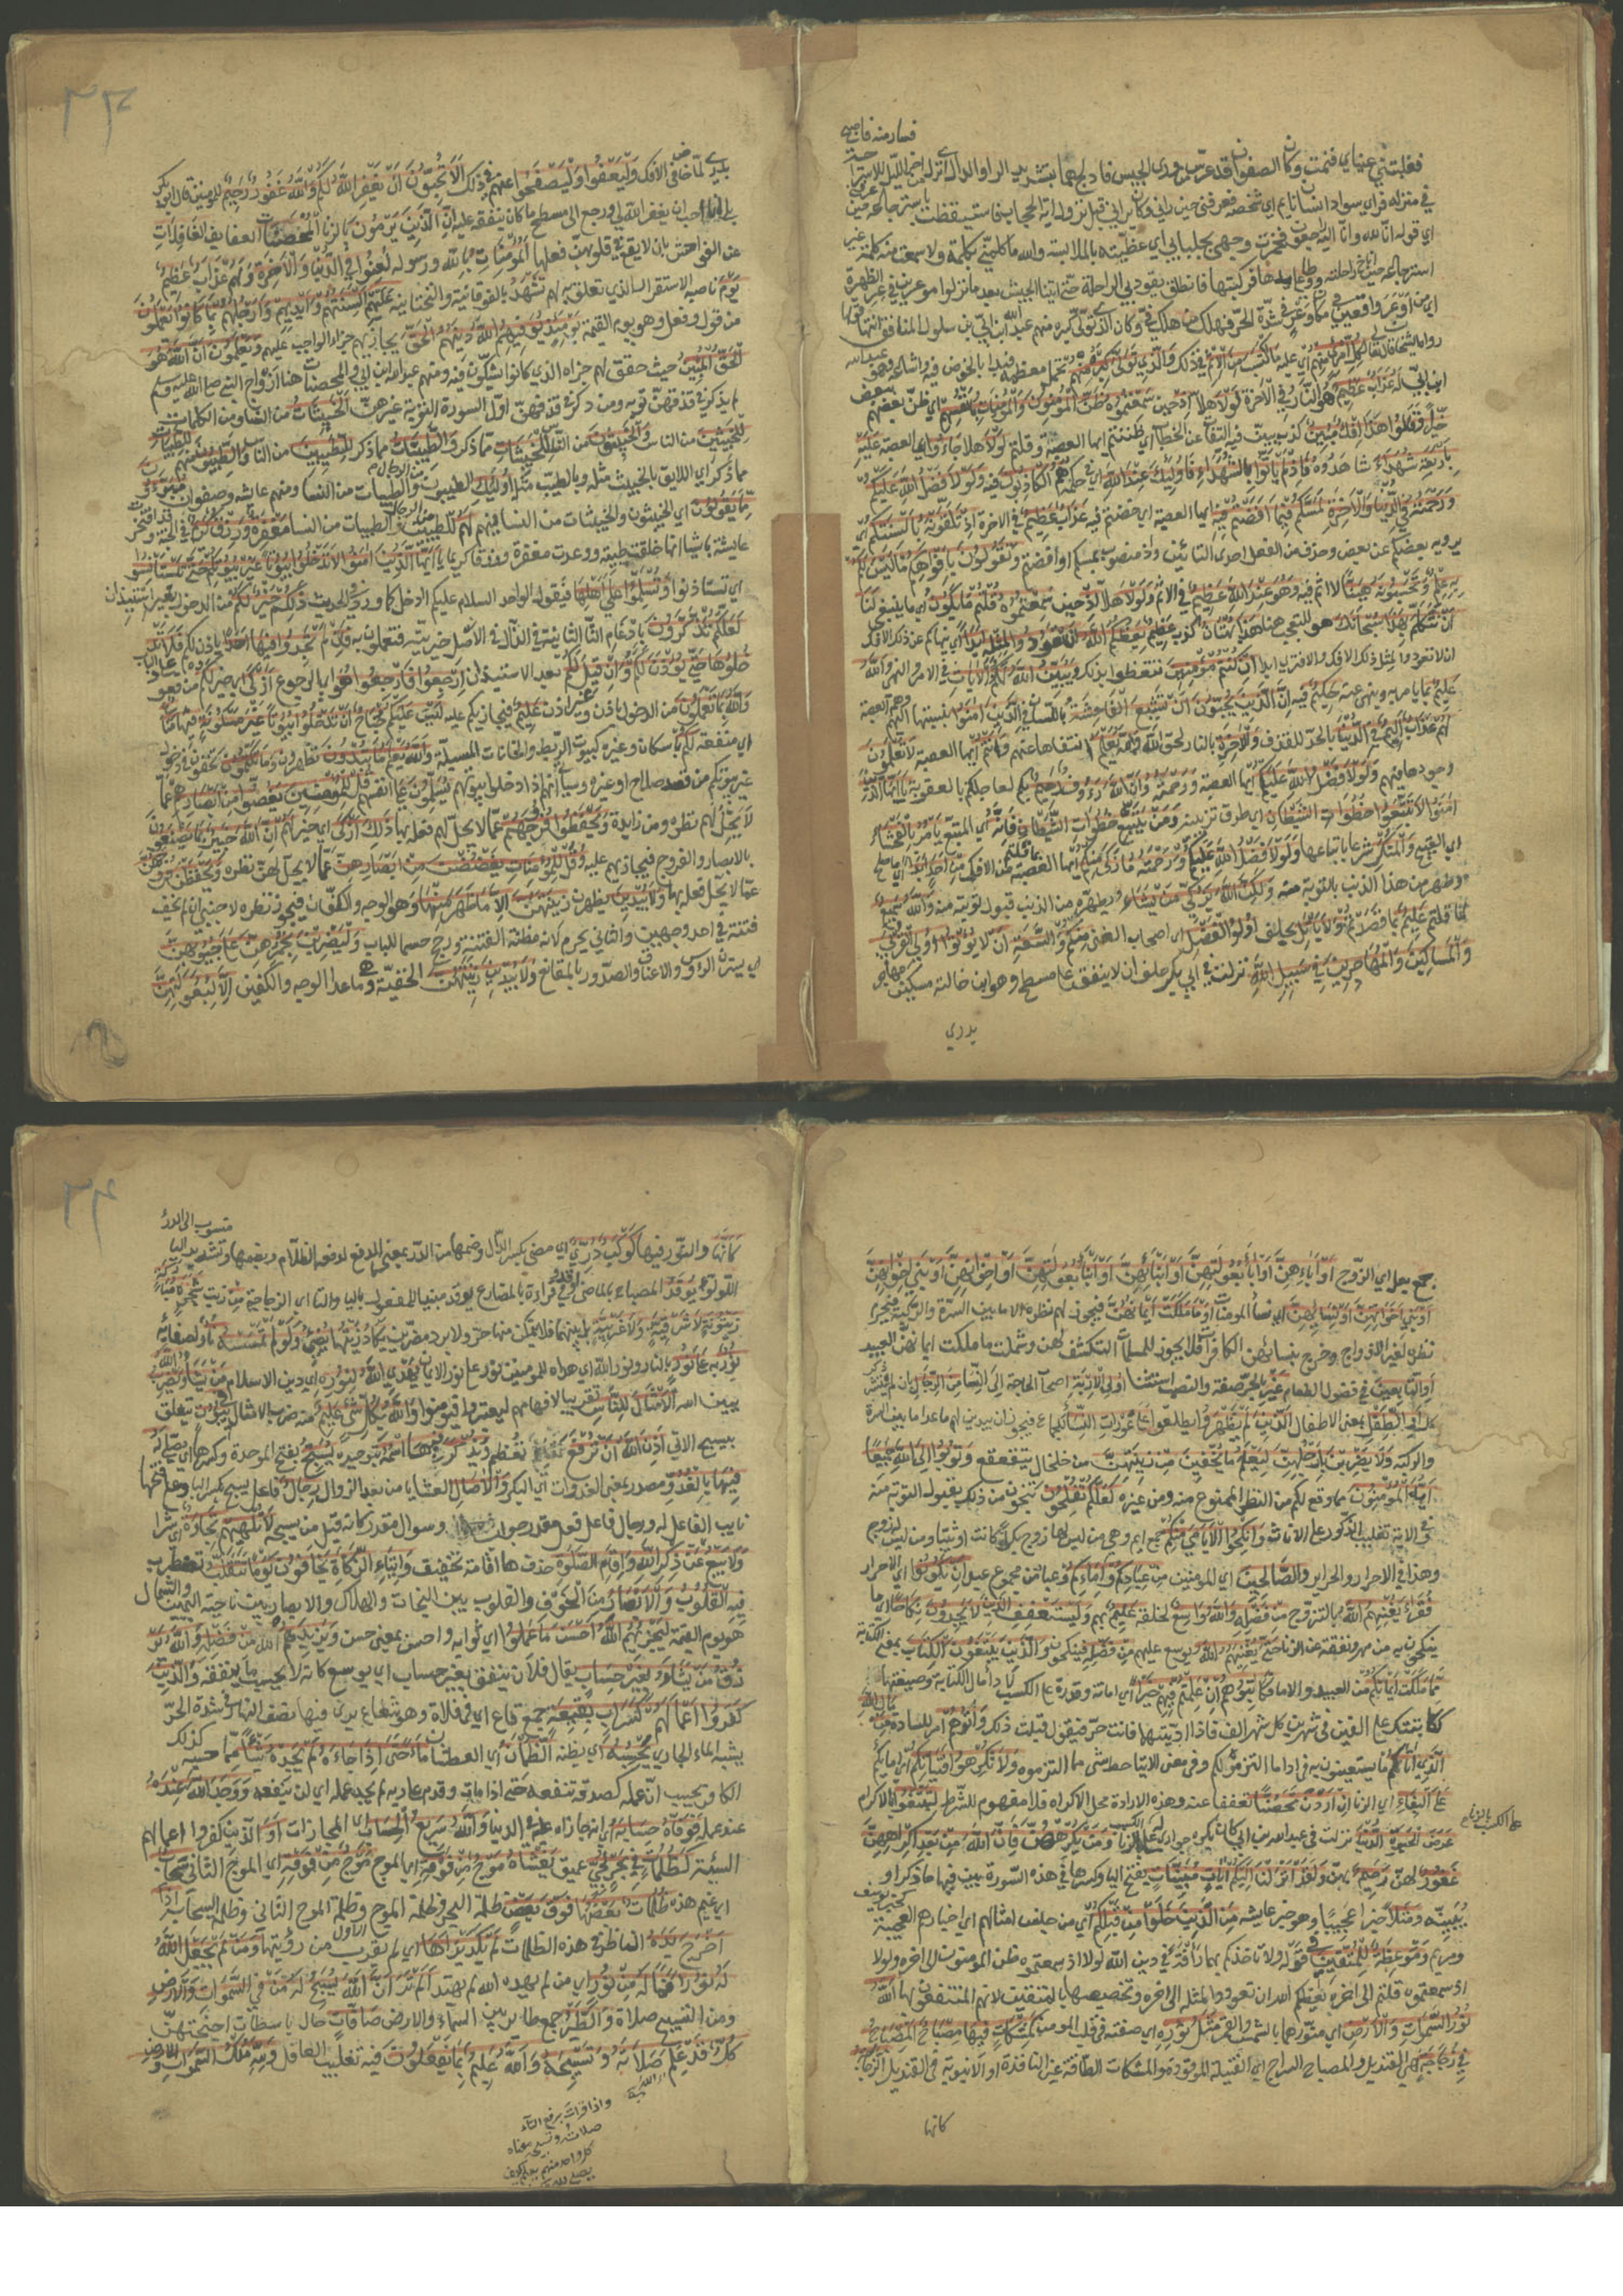 فغلبتني عيناي فنمت وكان الصفوان قد عرس من وراء الجيش فادلج هما بتشديد الراء والدال اي نزل من اخر الليل للاستراحة
في منزله فراى سواد انسان نايم اي شخصه فعرفني حين راني وكان يراني قبل نزول اية الحجاب فاستيقظت باسترجاعه حين عرفني
اي قوله انا لله وانا اليه راجعون فخمرت وجهي بجلبابي اي غطيته بالملاءة والله ما كلمني بكلمة ولا سمعت منه كلمة غير
استرجاعه حين اناخ راحلته ووطئ على يدها فركبتها فانطلق يقود بي الراحلة حتى اتينا الجيش بعد ما نزلوا موغرين في نحر الظهيرة
اي من اوغر اي واقعين في مكان وغر في شدة الحر فهلك من هلك في وكان الذي تولى كبره منهم عبد الله ابن ابي بن سلول المنافق انتهى قولها
رواه الشيخان قال تعالى لكل امرئ منهم اي عليه ما اكتسب من الاثم في ذلك والذي تولى كبره منهم اي تحمل معظمه فبدا بالخوض فيه واشاعه وهو عبد الله
ابن ابي له عذاب عظيم هو النار في الاخرة لولا هلا اذ حين سمعتموه ظن المؤمنون والمؤمنات بانفسهم اي ظن بعضهم ببعض
خيرا وقالوا هذا افك مبين كذب بين فيه التفات عن الخطاب اي ظننتم ايها العصبة وقلتم لولا هلا جاؤا اي العصبة عليه
باربعة شهداء شاهدوه فاذ لم ياتوا بالشهداء فاولئك عند الله اي في حكمه هم الكاذبون فيه ولولا فضل الله عليكم
ورحمته في الدنيا والاخرة لمسكم فيما افضتم فيه ايها العصبة اي خضتم فيه عذاب عظيم في الاخرة اذ تلقونه بالسنتكم اي
يرويه بعضكم عن بعض وحذف من الفعل احدى التائين واذ منصوب بمسكم او افضتم وتقولون بافواهكم ما ليس لكم
به علم وتحسبونه هينا لا اثم فيه وهو عند الله عظيم في الاثم ولولا هلا اذ حين سمعتموه قلتم ما يكون اي ما ينبغي لنا
ان نتكلم بهذا سبحانك هو للتعجب هنا هذا بهتان كذب عظيم يعظكم الله ان تعودوا لمثله ابدا اي ينهاكم عن ذلك الافك
ان كنتم مؤمنين تتعظوا بذلك ويبين الله لكم الايات في الامر والنهي والله
عليم بما يامر به وينهى عنه حكيم فيه ان الذين يحبون ان تشيع الفاحشة باللسان في الذين امنوا بنسبتها اليهم وهم العصبة
لهم عذاب اليم في الدنيا بالحد للقذف والاخرة بالنار لحق الله والله يعلم انتفاها عنهم وانتم ايها العصبة لا تعلمون
وجودها فيهم ولولا فضل الله عليكم ايها العصبة ورحمته وان الله رؤف رحيم بكم لعاجلكم بالعقوبة يا ايها الذين
امنوا لا تتبعوا خطوات الشيطان اي طرق تزيينه ومن يتبع خطوات الشيطان فانه اي المتبع يامر بالفحشاء
اي القبيح والمنكر شرعا باتباعها ولولا فضل الله عليكم ورحمته ما زكى منكم ايها العصبة بما قلتم من الافك من احد ابدا اي ما صلح
وطهر من هذا الذنب بالتوبة منه ولكن الله يزكي من يشاء ويطهره من الذنب بقبول توبته منه والله سميع
لما قلتم عليم بما قصدتم ولا ياتل يحلف اولوا الفضل اي اصحاب الغنى منكم والسعة ان لا يؤتوا اولي القربى
والمساكين والمهاجرين في سبيل الله نزلت في ابي بكر حلف ان لا ينفق على مسطح وهو ابن خالته مسكين مهاجر
بدري
بدري لما خاض في الافك وليعفوا وليصفحوا عنهم في ذلك الا تحبون ان يغفر الله لكم والله غفور رحيم للمؤمنين قال ابو بكر
بلى انا احب ان يغفر الله لي ورجع الى مسطح ما كان ينفقه عليه ان الذين يرمون بالزنا المحصنات العفايف الغافلات
عن الفواحش بان لا يقع في قلوبهن فعلها المؤمنات بالله ورسوله لعنوا في الدنيا والاخرة ولهم عذاب عظيم
يوم ناصبه الاستقرار الذي تعلق به لهم تشهد بالفوقانية والتحتانية عليهم السنتهم وايديهم وارجلهم بما كانوا يعملون
من قول وفعل وهو يوم القيمة يومئذ يوفيهم الله دينهم الحق يجازيهم جزاه الواجب عليهم ويعلمون ان الله هو
الحق المبين حيث حقق لهم جزاه الذي كانوا يشكون فيه ومنهم عبد الله ابن ابي والمحصنات هنا ازواج النبي صلى الله عليه وسلم
لم يذكر في قذفهن توبة ومن ذكر في قذفهن اول السورة التوبة غيرهن الخبيثات من النساء ومن الكلمات
للخبيثين من الناس والخبيثون من الناس للخبيثات مما ذكر والطيبات مما ذكر للطيبين من الناس والطيبون منهم للطيبات
مما ذكر اي اللايق بالخبيث مثله وبالطيب مثله اولئك الطيبون من الرجال والطيبات من النساء ومنهم عايشة وصفوان مبرؤن
مما يقولون اي الخبيثون والخبيثات من النساء فيهم لهم للطيبين والطيبات من النساء مغفرة ورزق كريم في الجنة وقد افتخرت
عايشة باشيا منها خلقت طيبة ووعدت مغفرة ورزقا كريما يا ايها الذين امنوا لا تدخلوا بيوتا غير بيوتكم حتى تستانسوا
اي تستاذنوا وتسلموا على اهلها فيقول الواحد السلام عليكم ادخل كما ورد في الحديث ذلكم خير لكم من الدخول بغير استيذان
لعلكم تذكرون بادغام التا الثانية في الذال في الاصل خيريته فتعملون به فان لم تجدوا فيها احدا ياذن لكم فلا تد
خلوها حتى يؤذن لكم وان قيل لكم بعد الاستيذان ارجعوا فارجعوا هو اي الرجوع ازكى اي خير لكم من القعود على الباب
والله بما تعملون من الدخول باذن وغير اذن عليم فيجازيكم عليه ليس عليكم جناح ان تدخلوا بيوتا غير مسكونة فيها متاع
اي منفعة لكم باسكان وغيره كبيوت الربط والخانات المسبلة والله يعلم ما تبدون تظهرون وما تكتمون تخفون في دخول
غير بيوتكم من قصد صلاح او غيره وسياتي انهم اذا دخلوا بيوتهم يسلمون على انفسهم قل للمؤمنين يغضوا من ابصارهم عما
لا يحل لهم نظره ومن زايدة ويحفظوا فروجهم عما لا يحل لهم فعله بها ذلك ازكى اي خير لهم ان الله خبير بما يصنعون
بالابصار والفروج فيجازيهم عليه وقل للمؤمنات يغضضن من ابصارهن عما لا يحل لهن نظره ويحفظن فروجهن
عما لا يحل فعله بها ولا يبدين يظهرن زينتهن الا ما ظهر منها وهو الوجه والكفان فيجوز نظره لاجنبي ان لم يخف
فتنة في احد وجهين والثاني يحرم لانه مظنة الفتنة ورجح حسما للباب وليضربن بخمرهن على جيوبهن
اي يسترن الرؤس والاعناق والصدور بالمقانع ولا يبدين زينتهن الخفية وهي ما عدا الوجه والكفين الا لبعولتهن
جمع بعل اي الزوج او ابائهن او اباء بعولتهن او ابنائهن او ابناء بعولتهن او اخوانهن او بني اخوانهن
او بني اخواتهن او نسائهن اي نساء المؤمنات او ما ملكت ايمانهن فيجوز لهم نظره الا ما بين السرة والركبة فيحرم
نظره لغير الازواج وخرج بنسائهن الكافرات فلا يجوز للمسلمات التكشف لهن وشملت ما ملكت ايمانهن العبيد
او التابعين في فضول الطعام غير بالجر صفة والنصب استثنا اولي الاربة اصحاب الحاجة الى النساء من الرجال بان لم ينتشر
ذكر كل او الطفل بمعنى الاطفال الذين لم يظهروا يطلعوا على عورات النساء للجماع فيجوز ان يبدين لهم ما عدا ما بين السرة
والركبة ولا يضربن بارجلهن ليعلم ما يخفين من زينتهن من خلخال يتقعقع وتوبوا الى الله جميعا
ايه المؤمنون مما وقع لكم من النظر الممنوع منه ومن غيره لعلكم تفلحون تنجون من ذلك بقبول التوبة منه
في الاية تغليب الذكور على الاناث وانكحوا الايامى منكم جمع ايم وهي من ليس لها زوج بكرا كانت او ثيبا ومن ليس له زوج
وهذا في الاحرار والحراير والصالحين اي المؤمنين من عبادكم وامائكم وعباد من جموع عبد ان يكونوا اي الاحرار
فقراء يغنهم الله بالتزوج من فضله والله واسع لخلقه عليم بهم وليستعفف الذين لا يجدون نكاحا اي ما
ينكحون به من مهر ونفقة عن الزنا حتى يغنيهم الله ويوسع عليهم من فضله فينكحون والذين يبتغون الكتاب بمعنى الكتابة
مما ملكت ايمانكم من العبيد والاماء فكاتبوهم ان علمتم فيهم خيرا اي امانة وقدرة على الكسب لاداء مال الكتابة وصيغتها
كاتبتك على الفين في شهرين كل شهر الف فاذا اديتها فانت حر فيقول قبلت ذلك واتوهم امر للسادة من مال الله
الذي اتاكم ما يستعينون به في اداء ما التزموه لكم وفي معنى الايتاء حط شيء مما التزموه ولا تكرهوا فتياتكم اي امائكم
على البغاء اي الزنا ان اردن تحصنا تعففا عنه وهذه الارادة محل الاكراه فلا مفهوم للشرط لتبتغوا بالاكراه
عرض الحيوة الدنيا نزلت في عبد الله بن ابي كان يكره جواريه على الكسب بالزنا ومن يكرههن فان الله من بعد اكراههن
غفور لهن رحيم بهن ولقد انزلنا اليكم ايات مبينات بفتح اليا وكسرها في هذه السورة بين فيها ما ذكر او
بينة ومثلا خبرا عجيبا وهو خبر عايشة من الذين خلوا من قبلكم اي من جنس امثالهم اي اخبارهم العجيبة كخبر يوسف
ومريم وموعظة للمتقين في قوله ولا تاخذكم بهما رافة في دين الله لولا اذ سمعتموه ظن المؤمنون الى اخره ولولا
اذ سمعتموه قلتم الى اخره يعظكم الله ان تعودوا لمثله الى اخره وتخصيصها بالمتقين لانهم المنتفعون بها الله
نور السموات والارض اي منورهما بالشمس والقمر مثل نوره اي صفته في قلب المؤمن كمشكاة فيها مصباح المصباح
في زجاجة هي القنديل والمصباح السراج اي الفتيلة الموقودة والمشكاة الطاقة غير النافذة او الانبوبة في القنديل الزجاجة
كانها
على الكسب بالزنا
منسوب الى الدر
كانها والنور فيها كوكب دري اي مضيء بكسر الدال وضمها من الدرء بمعنى الدفع لدفعه الظلام وبضمها وتشديد اليا
اللؤلؤ يوقد المصباح بالماضي وفي قراءة بالمضارع يوقد مبنيا للمفعول بالياء والتاء اي الزجاجة من زيت شجرة مباركة
زيتونة لا شرقية ولا غربية بل بينهما فلا يتمكن منها حر ولا برد مضرين يكاد زيتها يضيء ولو لم تمسسه نار لصفائه
نور به على نور بالنار ونور الله اي هداه للمؤمنين نور على نور الايمان يهدي الله لنوره اي دين الاسلام من يشاء ويضرب
يبين الله الامثال للناس تقريبا لافهامهم ليعتبروا فيؤمنوا والله بكل شيء عليم منه ضرب الامثال في بيوت يتعلق
بيسبح الاتي اذن الله ان ترفع تعظم ويذكر فيها اسمه بتوحيده يسبح بفتح الموحدة وكسرها اي يصلي له
فيها بالغدو مصدر بمعنى الغدوات اي البكر والاصال العشايا من بعد الزوال رجال فاعل يسبح بكسر الباء وعلى فتحها
نايب الفاعل له ورجال فاعل فعل مقدر جواب وسوال مقدر كانه قيل من يسبحه لا تلهيهم تجارة اي شراء
ولا بيع عن ذكر الله واقام الصلوة حذف هاء اقامة تخفيف وايتاء الزكاة يخافون يوما تتقلب تضطرب
فيه القلوب والابصار من الخوف والقلوب بين النجاة والهلاك والابصار بين ناحية اليمين والشمال
هو يوم القيمة ليجزيهم الله احسن ما عملوا اي ثوابه واحسن بمعنى حسن ويزيدهم الله من فضله والله ير
زق من يشاء بغير حساب يقال فلان ينفق بغير حساب اي يوسع كانه لا يحسب ما ينفقه والذين
كفروا اعمالهم كسراب بقيعة جمع قاع اي في فلاة وهو شعاع يرى فيها نصف النهار في شدة الحر
يشبه الماء الجاري يحسبه اي يظنه الظمآن اي العطشان ماء حتى اذا جاءه لم يجده شيئا مما حسبه كذلك
الكافر يحسب ان عمله كصدقة تنفعه حتى اذا مات وقدم على ربه لم يجد عمله اي لن ينفعه ووجد الله عنده
عند عمله فوفاه حسابه اي انه جازاه عليه في الدنيا والله سريع الحساب اي المجازات او الذين كفروا اعمالهم
السيئة كظلمات في بحر لجي عميق يغشاه موج من فوقه اي الموج موج من فوقه اي الموج الثاني سحاب
اي غيم هذه ظلمات بعضها فوق بعض ظلمة البحر وظلمة الموج وظلمة الموج الثاني وظلمة السحاب اذا
اخرج يده الناظر في هذه الظلمات لم يكد يراها اي لم يقرب من رؤيتها ومن لم يجعل الله
له نورا فما له من نور اي من لم يهده الله لم يهتد الم تر ان الله يسبح له من في السموات والارض
ومن التسبيح صلاة والطير جمع طاير بين السماء والارض صافات حال باسطات اجنحتهن
كل قد علم صلاته وتسبيحه والله عليم بما يفعلون فيه تغليب العاقل ولله ملك السموات والارض
واذا قرات برفع التاء